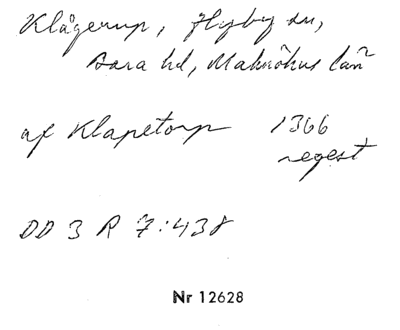 Klågerup, Hyby sn,
Bara hd, Malmöhus län
af Klapetorp 1366
regest
DD 3 R 7:438
Nr 12628